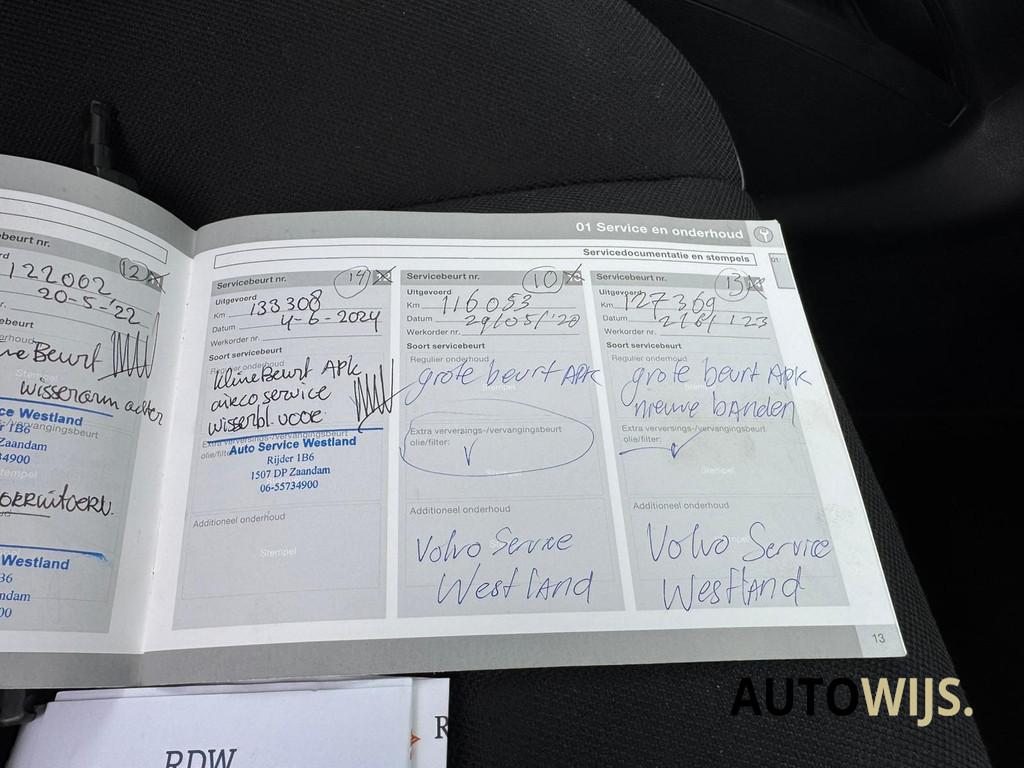 01 Service en onderhoud
Servicedocumentatie en stempels
01
beurt nr. 12
122002
20-5-'22
Beurt
wisserarm achter
ce Westland
r 1B6
Zaandam
/vervangingsbeurt
Westland
B6
ndam
00
Servicebeurt nr. 14
Uitgevoerd
Km 133308
Datum 4-6-2024
Werkorder nr.
Soort servicebeurt
Regulier onderhoud
kleine Beurt APK
airco service
wisserbl. voor
Extra verversings-/vervangingsbeurt
olie/filter:
Auto Service Westland
Rijder 1B6
1507 DP Zaandam
06-55734900
Additioneel onderhoud
Stempel
Servicebeurt nr. 10
Uitgevoerd
Km 116053
Datum 29/05/'20
Werkorder nr.
Soort servicebeurt
Regulier onderhoud
grote beurt APK
Extra verversings-/vervangingsbeurt
olie/filter: ✓
Stempel
Additioneel onderhoud
Volvo Service
Westland
Servicebeurt nr. 13
Uitgevoerd
Km 127369
Datum
Werkorder nr.
Soort servicebeurt
Regulier onderhoud
grote beurt APK
nieuwe banden
Extra verversings-/vervangingsbeurt
olie/filter: ✓
Stempel
Additioneel onderhoud
Volvo Service
Westland
13
RDW
R
AUTOWIJS.